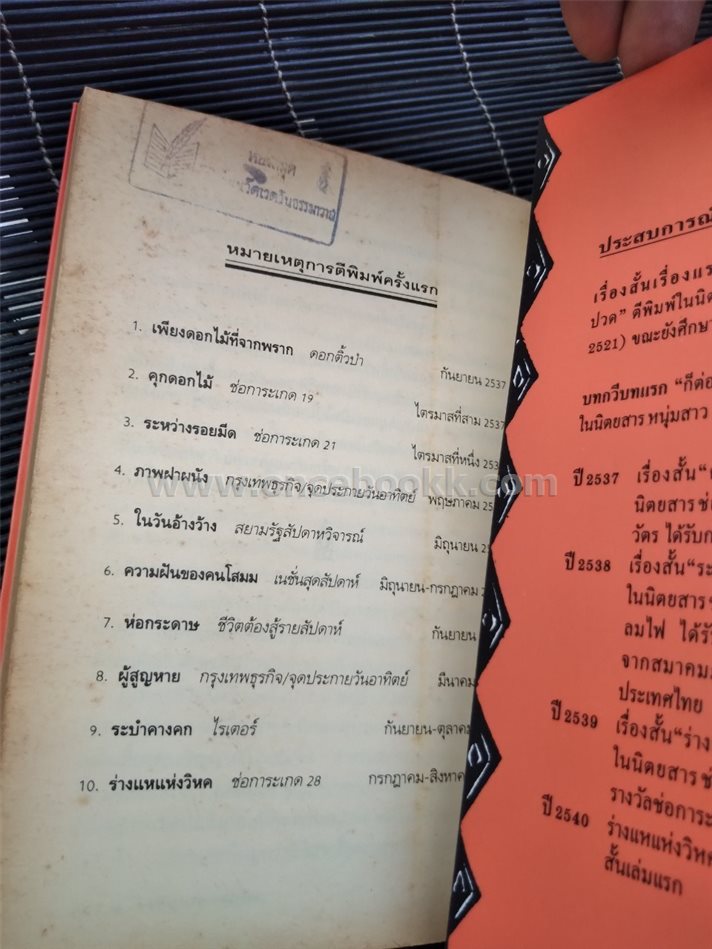 หมายเหตุการตีพิมพ์ครั้งแรก
1. เพียงดอกไม้ที่จากพราก ดอกติ้วป่า กันยายน 2537
2. คุกดอกไม้ ช่อการะเกด 19 ไตรมาสที่สาม 2537
3. ระหว่างรอยมีด ช่อการะเกด 21 ไตรมาสที่หนึ่ง 253
4. ภาพฝาผนัง กรุงเทพธุรกิจ/จุดประกายวันอาทิตย์ พฤษภาคม 25
5. ในวันอ้างว้าง สยามรัฐสัปดาหวิจารณ์ มิถุนายน 2
6. ความฝันของคนโสมม เนชั่นสุดสัปดาห์ มิถุนายน-กรกฎาคม
7. ห่อกระดาษ ชีวิตต้องสู้รายสัปดาห์ กันยายน
8. ผู้สูญหาย กรุงเทพธุรกิจ/จุดประกายวันอาทิตย์ มีนาคม
9. ระบำคางคก ไรเตอร์ กันยายน-ตุลาคม
10. ร่างแหแห่งวิหค ช่อการะเกด 28 กรกฎาคม-สิงหาค
ประสบการณ์
เรื่องสั้นเรื่องแร
ปวด” ตีพิมพ์ในนิต
2521) ขณะยังศึกษา
บทกวีบทแรก “ก็ต่อ
ในนิตยสาร หนุ่มสาว
ปี 2537 เรื่องสั้น“
นิตยสารช่อ
วัตร ได้รับก
ปี 2538 เรื่องสั้น“ระ
ในนิตยสารช
ลมไฟ ได้รั
จากสมาคมภ
ประเทศไทย
ปี 2539 เรื่องสั้น“ร่าง
ในนิตยสารช่
รางวัลช่อการะ
ปี 2540 ร่างแหแห่งวิหค
สั้นเล่มแรก